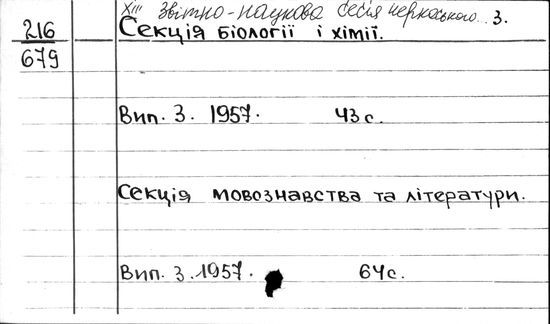 XIII Звітно-наукова сесія черкаського.. 3.
216
679
Секція біології і хімії.
Вип. 3. 1957. 43 с.
Секція мовознавства та літератури.
Вип. 3. 1957. 64 с.